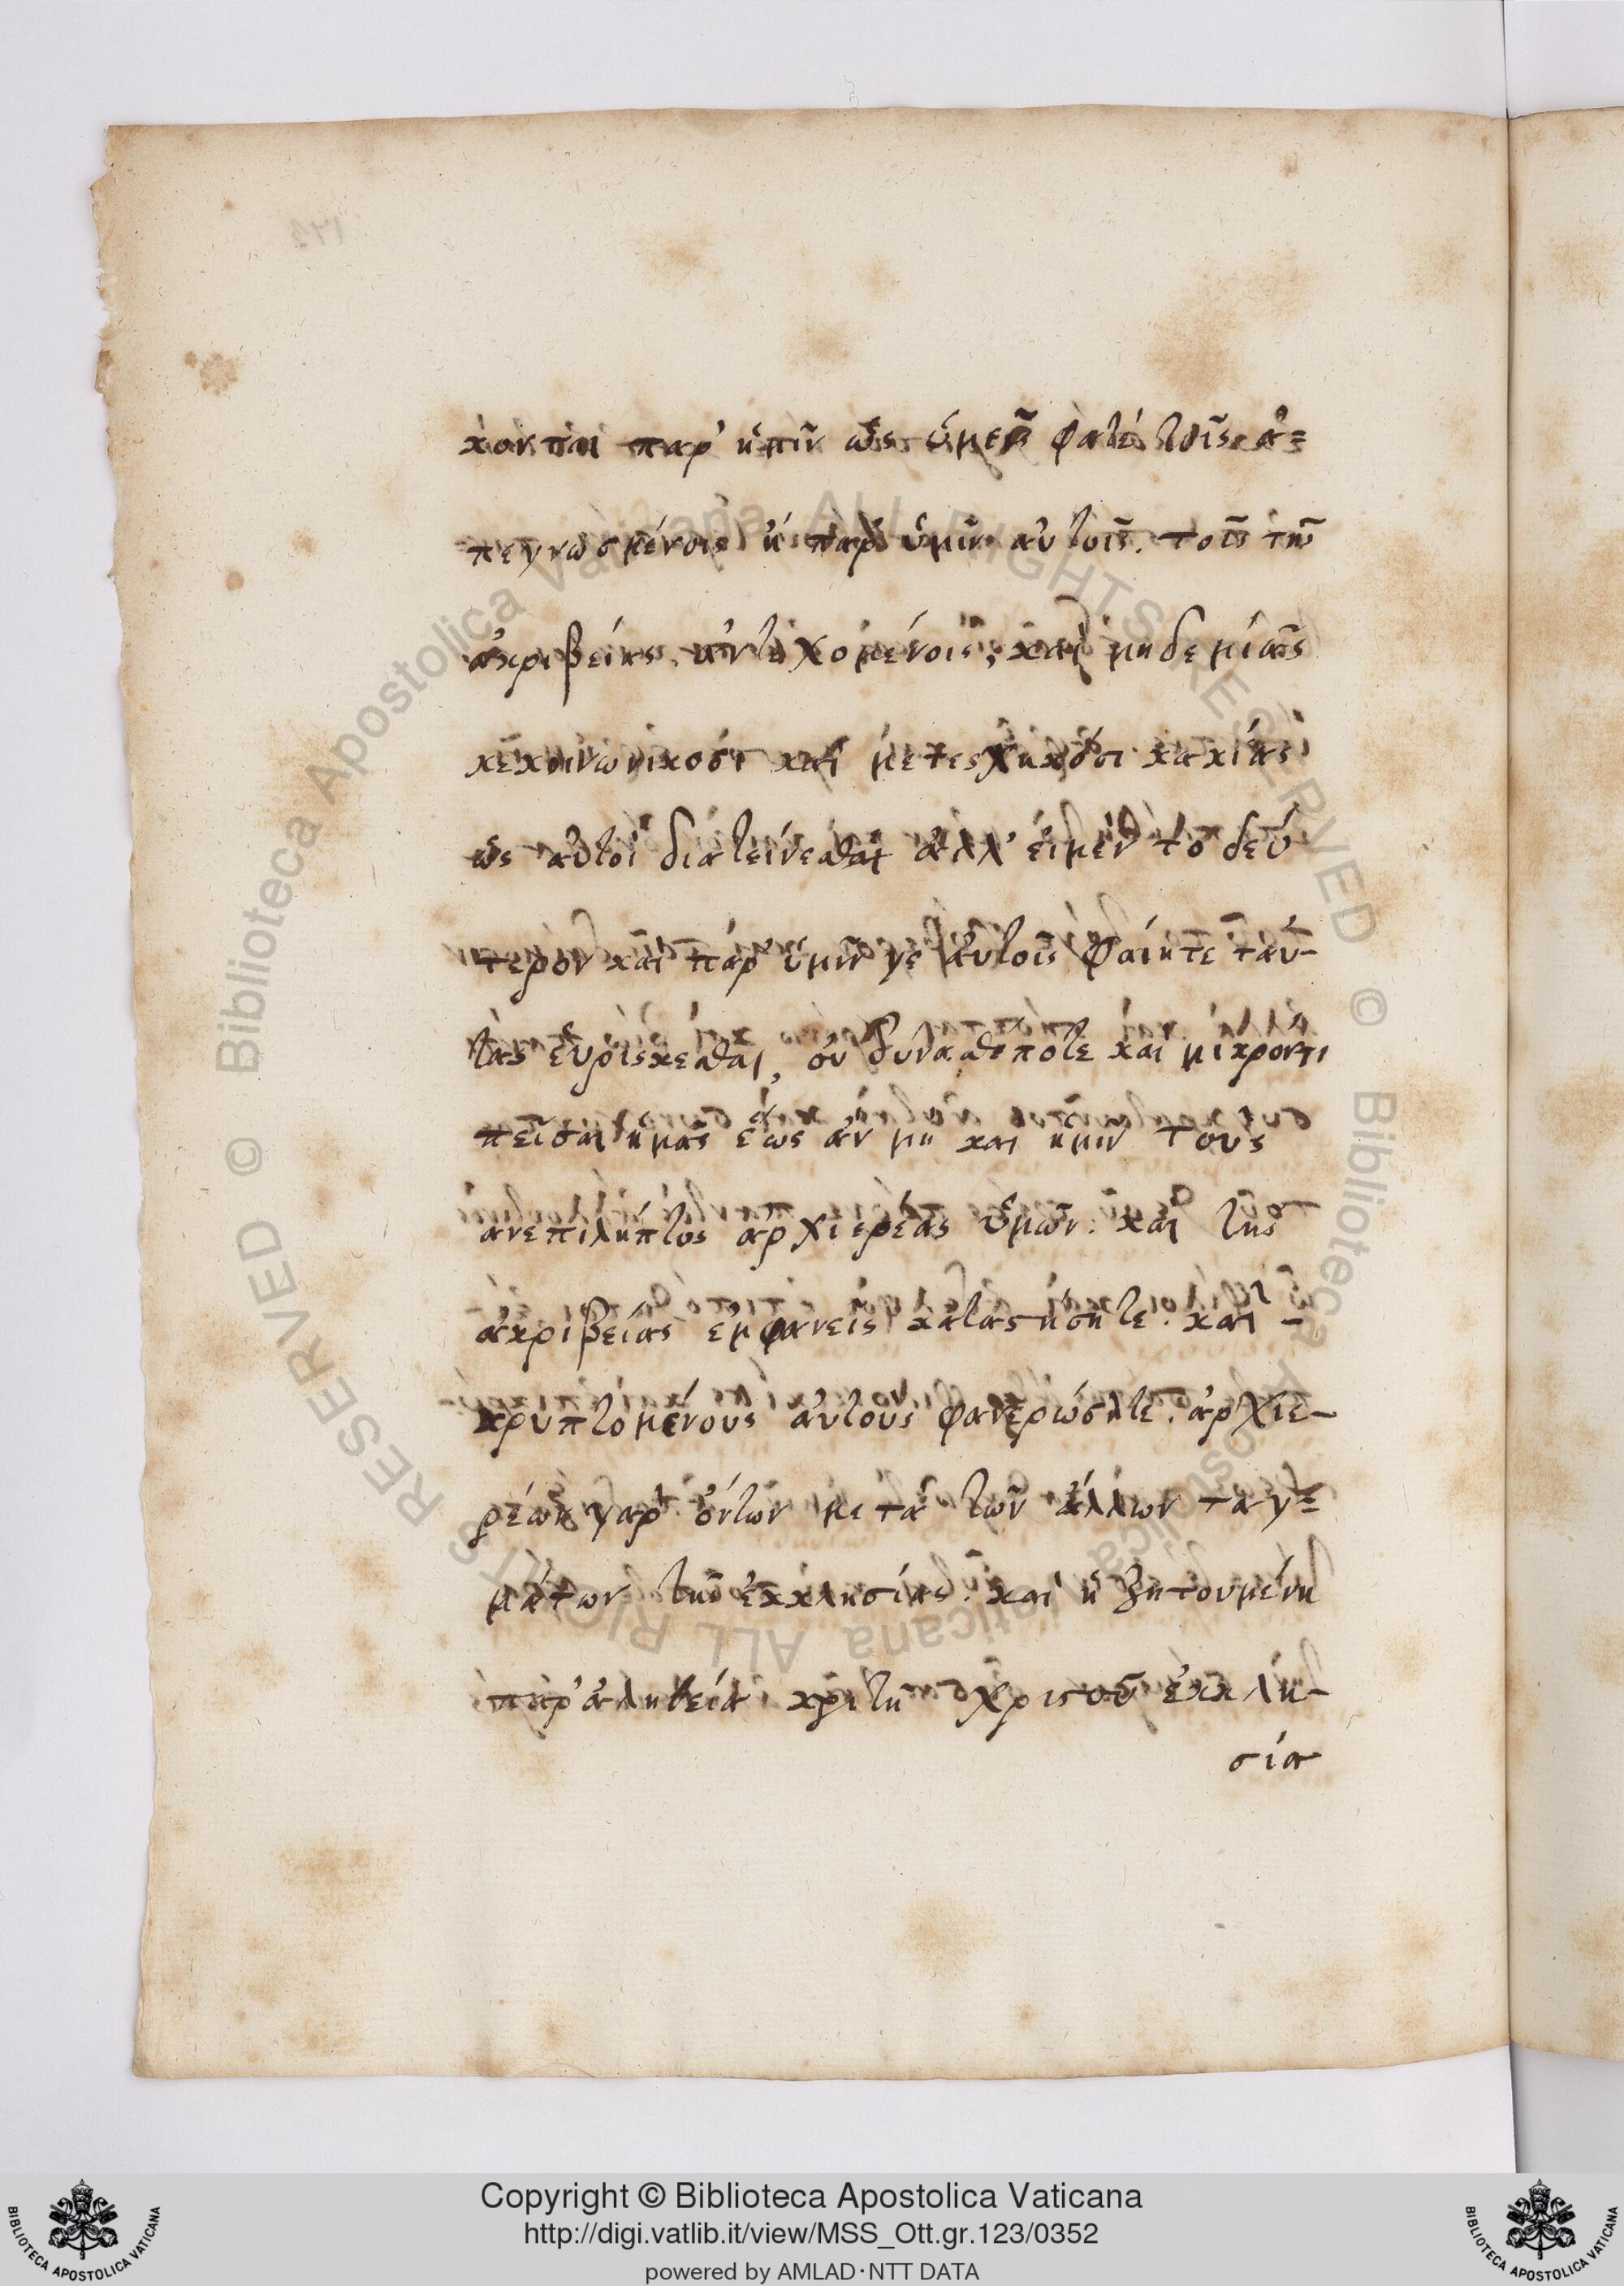 χονται παρ' ἡμῖν ὡς ὑμεῖς φατέ τοῖς ἀ=
πεγνωσμένοις ἢ παρ' ὑμῖν αὐτοῖς. τοῖς τῆς
ἀκριβείας ἀντεχομένοις, καὶ μηδεμίας
κεκοινωνικόσι καὶ μετεσχηκόσι κακίας
ὡς αὐτοὶ διατείνεσθαι ἀλλ' εἰ μὲν τὸ δεύ
τερον καὶ παρ' ὑμῖν γε αὐτοῖς φαίητε ταύ-
τας εὑρίσκεσθαι, οὐ δύνασθε ποτε καὶ μικρόν τι
πεῖσαι ἡμᾶς ἕως ἂν μὴ καὶ ἡμῖν τοὺς
ανεπιλήπτος ἀρχιερέας ὑμῶν. καὶ τῆς
ἀκριβείας ἐμφανεῖς καταστήσητε. καὶ -
κρυπτομένους αὐτοὺς φανερώσητε. ἀρχιε-
ρέων γαρ ὄντων μετὰ τῶν ἄλλων ταγ=
μάτων τῆς ἐκκλησίας. καὶ ἡ ζητουμένη
παρ' ἀληθεία χριστοῦ ἐκκλη-
σία
Copyright © Biblioteca Apostolica Vaticana
http://digi.vatlib.it/view/MSS_Ott.gr.123/0352
powered by AMLAD·NTT DATA
BIBLIOTECA APOSTOLICA VATICANA
BIBLIOTECA APOSTOLICA VATICANA
© Biblioteca Apostolica Vaticana ALL RIGHTS RESERVED
© Biblioteca Apostolica Vaticana ALL RIGHTS RESERVED